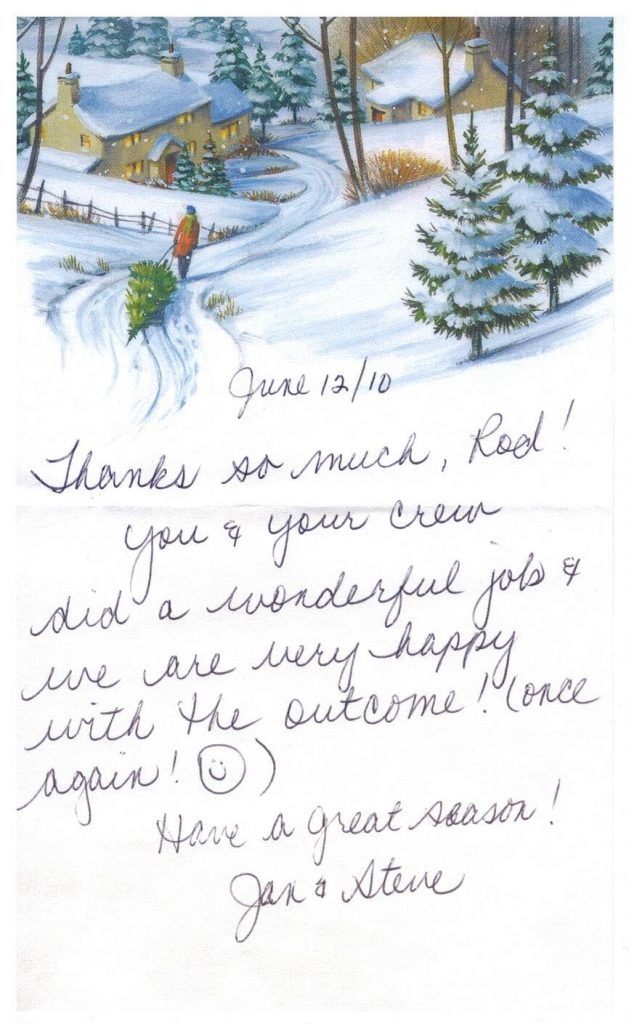 June 12/10
Thanks so much, Rod!
You & your crew
did a wonderful job &
we are very happy
with the outcome! (once
again! ☺)
Have a great season!
Jan & Steve